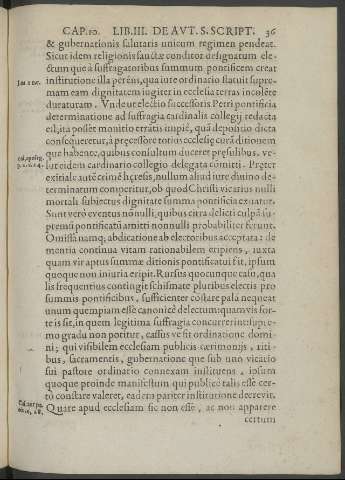 CAP.10. LIB.III. DE AVT. S. SCRIPT. 36
& gubernationis salutaris unicum regimen pendeat.
Sicut idem religionis sanctæ conditor designatum ele-
ctum que à suffragatoribus summum pontificem creat
institutione illa perēns, qua iure ordinario statuit supre-
mam eam dignitatem iugiter in ecclesia terras incolēte
duraturam. Vnde ut electio successoris Petri pontificia
determinatione ad suffragia cardinalis collegij redacta
est, ita posset monitio erratis impiè, quā depositio dicta
consequeretur, à præcessore totius ecclesię curā ditionem
que habente, quibus consultum duceret presulibus, ve-
lut eidem cardinatio collegio delegata cōmitti. Præter
exitiale autē crimē hęresis, nullum aliud iure diuino de-
terminatum comperitur, ob quod Christi vicarius nulli
mortali subiectus dignitate summa pontificia exuatur.
Sunt verò euentus nōnulli, quibus citra delicti culpā su-
premā pontificatū amitti nonnulli probabiliter ferunt.
Omissa namq; abdicatione ab electoribus acceptata: de
mentia continua vitam rationabilem eripiens, iuxta
quam vir aptus summæ ditionis pontificatui sit, ipsum
quoque non iniuria eripit. Rursus quocunque casu, qua
lis frequentius contingit schismate pluribus electis pro
summis pontificibus, sufficienter cōstare palā nequeat
unum quempiam esse canonicè delectum quamvis for-
te is sit, in quem legitima suffragia concurrerint supre-
mo gradu non potitur, cassus ve sit ordinatione domi-
ni; qui visibilem ecclesiam publicis cærimonijs, riti-
bus, sacramentis, gubernatione que sub uno vicario
sui pastore ordinatio connexam instituens, ipsum
quoque proinde manifestum qui publicè talis esse cer-
tò constare valeret, eadem pariter institutione decreuit.
Quare apud ecclesiam sic non esse, ac non apparere
certum